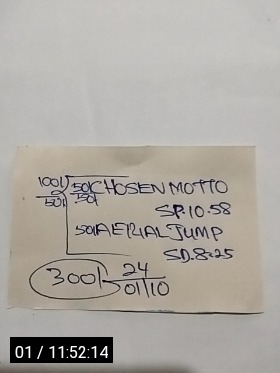 1001 501 CHOSEN MOTTO
501 501
SP.10.58
501 AERIAL JUMP
SD.8.25
3001 24
01/10
01 / 11:52:14